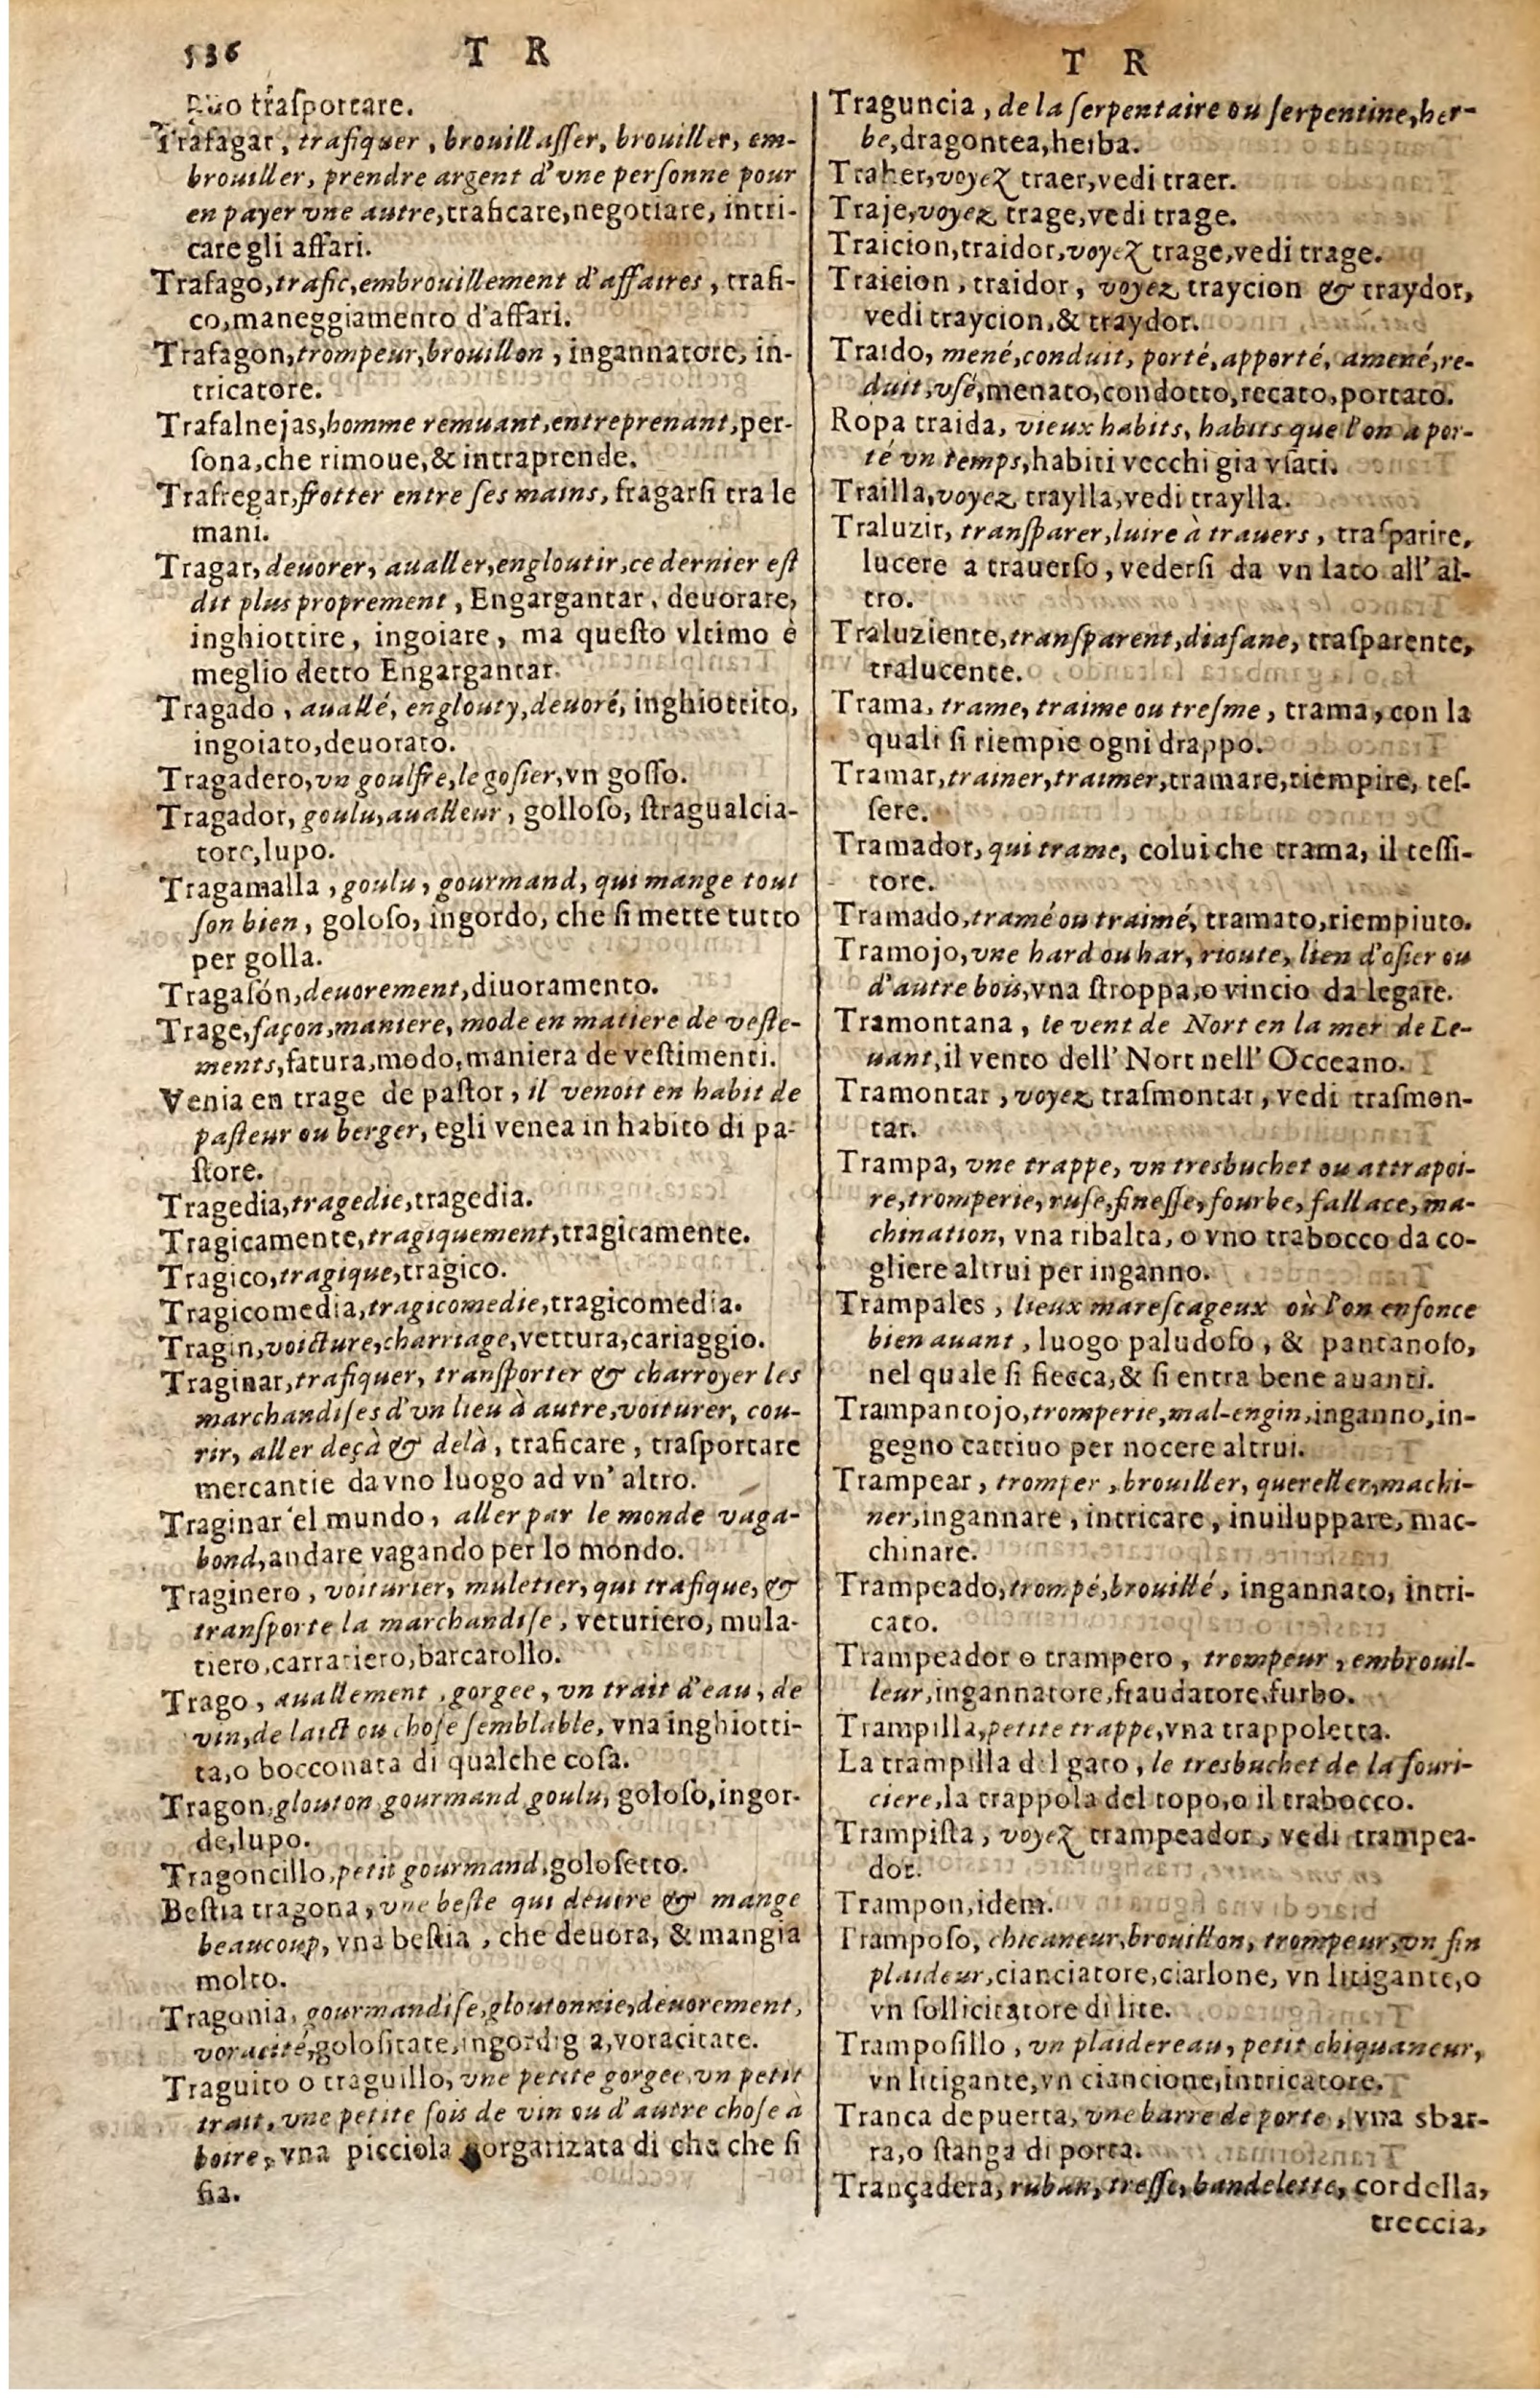 536 T R
T R
quo trasportare.
Trafagar, trafiquer, brouillasser, brouiller, em-
brouiller, prendre argent d'vne personne pour
en payer vne autre, traficare, negotiare, intri-
care gli affari.
Trafago, trafic, embrouillement d'affaires, trafi-
co, maneggiamento d'affari.
Trafagon, trompeur, brouillon, ingannatore, in-
tricatore.
Trafalnejas, homme remuant, entreprenant, per-
sona, che rimoue, & intraprende.
Trafregar, frotter entre ses mains, fragarsi tra le
mani.
Tragar, deuorer, aualler, engloutir, ce dernier est
dit plus proprement, Engargantar, deuorare,
inghiottire, ingoiare, ma questo vltimo è
meglio detto Engargantar.
Tragado, auallé, englouty, deuoré, inghiottito,
ingoiato, deuorato.
Tragadero, vn goulfre, le gosier, vn gosso.
Tragador, goulu, aualleur, golloso, stragualcia-
tore, lupo.
Tragamalla, goulu, gourmand, qui mange tout
son bien, goloso, ingordo, che si mette tutto
per golla.
Tragasón, deuorement, diuoramento.
Trage, façon, maniere, mode en matiere de veste-
ments, fatura, modo, maniera de vestimenti.
Venia en trage de pastor, il venoit en habit de
pasteur ou berger, egli venea in habito di pa-
store.
Tragedia, tragedie, tragedia.
Tragicamente, tragiquement, tragicamente.
Tragico, tragique, tragico.
Tragicomedia, tragicomedie, tragicomedia.
Tragin, voicture, charriage, vettura, cariaggio.
Traginar, trafiquer, transporter & charroyer les
marchandises d'vn lieu à autre, voiturer, cou-
rir, aller deçà & delà, traficare, trasportare
mercantie da vno luogo ad vn' altro.
Traginar el mundo, aller par le monde vaga-
bond, andare vagando per lo mondo.
Traginero, voiturier, muletier, qui trafique, &
transporte la marchandise, veturiero, mula-
tiero, carratiero, barcarollo.
Trago, auallement, gorgee, vn trait d'eau, de
vin, de laict ou chose semblable, vna inghiotti-
ta, o bocconata di qualche cosa.
Tragon, glouton, gourmand, goulu, goloso, ingor-
de, lupo.
Tragoncillo, petit gourmand, golosetto.
Bestia tragona, vne beste qui deuore & mange
beaucoup, vna bestia, che deuora, & mangia
molto.
Tragonia, gourmandise, gloutonnie, deuorement,
voracité, golositate, ingordig a, voracitate.
Traguito o traguillo, vne petite gorgee, vn petit
trait, vne petite fois de vin ou d'autre chose à
boire, vna picciola gorgarizata di che che si
sia.
Traguncia, de la serpentaire ou serpentine, her-
be, dragontea, herba.
Traher, voyez traer, vedi traer.
Traje, voyez trage, vedi trage.
Traicion, traidor, voyez trage, vedi trage.
Traicion, traidor, voyez traycion & traydor,
vedi traycion, & traydor.
Traido, mené, conduit, porté, apporté, amené, re-
duit, vsé, menato, condotto, recato, portato.
Ropa traida, vieux habits, habits que l'on a por-
té vn temps, habiti vecchi gia vsati.
Trailla, voyez traylla, vedi traylla.
Traluzir, transparer, luire à trauers, trasparire,
lucere a trauerso, vedersi da vn lato all' al-
tro.
Traluziente, transparent, diafane, trasparente,
tralucente.
Trama, trame, traime ou tresme, trama, con la
quali si riempie ogni drappo.
Tramar, tramer, traimer, tramare, riempire, tes-
sere.
Tramador, qui trame, colui che trama, il tessi-
tore.
Tramado, tramé ou traimé, tramato, riempiuto.
Tramojo, vne hard ou har, rioute, lien d'osier ou
d'autre bois, vna stroppa, o vincio da legare.
Tramontana, le vent de Nort en la mer de Le-
uant, il vento dell' Nort nell' Occeano.
Tramontar, voyez trasmontar, vedi trasmon-
tar.
Trampa, vne trappe, vn tresbuchet ou attrapoi-
re, tromperie, ruse, finesse, fourbe, fallace, ma-
chination, vna ribalta, o vno trabocco da co-
gliere altrui per inganno.
Trampales, lieux marescageux où l'on enfonce
bien auant, luogo paludoso, & pantanoso,
nel quale si ficcca, & si entra bene auanti.
Trampantojo, tromperie, mal-engin, inganno, in-
gegno cattiuo per nocere altrui.
Trampear, tromper, brouiller, quereller, machi-
ner, ingannare, intricare, inuiluppare, mac-
chinare.
Trampeado, trompé, brouillé, ingannato, intri-
cato.
Trampeador o trampero, trompeur, embrouil-
leur, ingannatore, fraudatore, furbo.
Trampilla, petite trappe, vna trappoletta.
La trampilla d l gato, le tresbuchet de la souri-
ciere, la trappola del topo, o il trabocco.
Trampista, voyez trampeador, vedi trampea-
dor.
Trampon, idem.
Tramposo, chicaneur, brouillon, trompeur, vn fin
plaideur, cianciatore, ciarlone, vn litigante, o
vn sollicitatore di lite.
Tramposillo, vn plaidereau, petit chiquaneur,
vn litigante, vn ciancione, intricatore.
Tranca de puerta, vne barre de porte, vna sbar-
ra, o stanga di porta.
Trançadera, ruban, tresse, bandelette, cordella,
treccia,